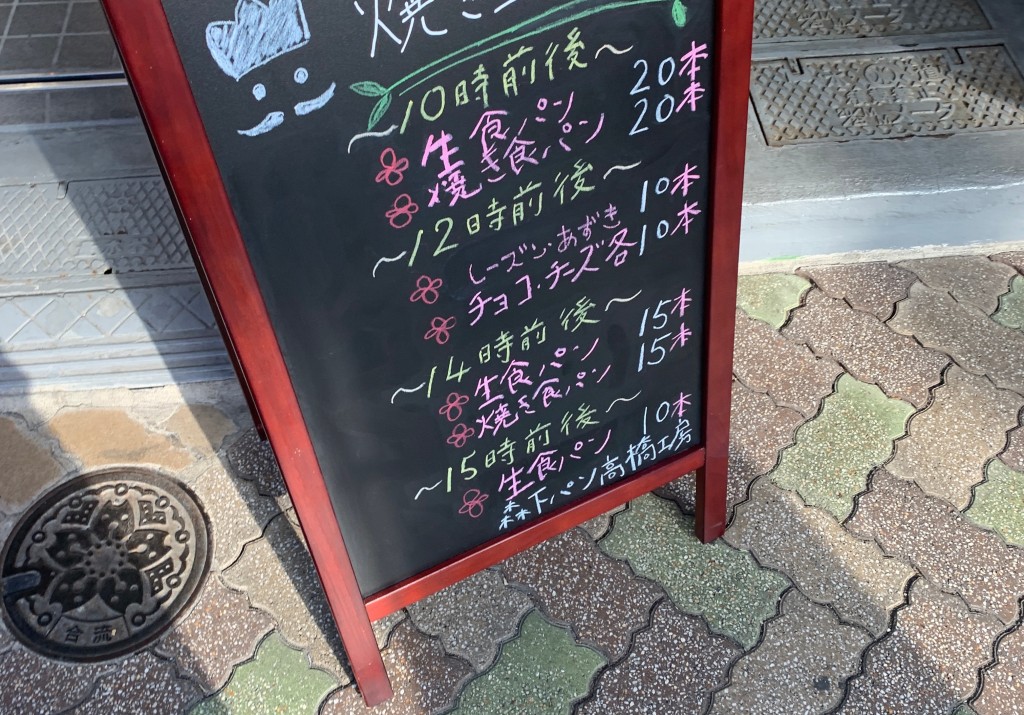 焼き
~10時前後~
生食パン 20本
焼き食パン 20本
~12時前後~
レーズン・あずき 10本
チョコ・チーズ各10本
~14時前後~
生食パン 15本
焼き食パン 15本
~15時前後~
生食パン 10本
森下パン高橋工房
合流